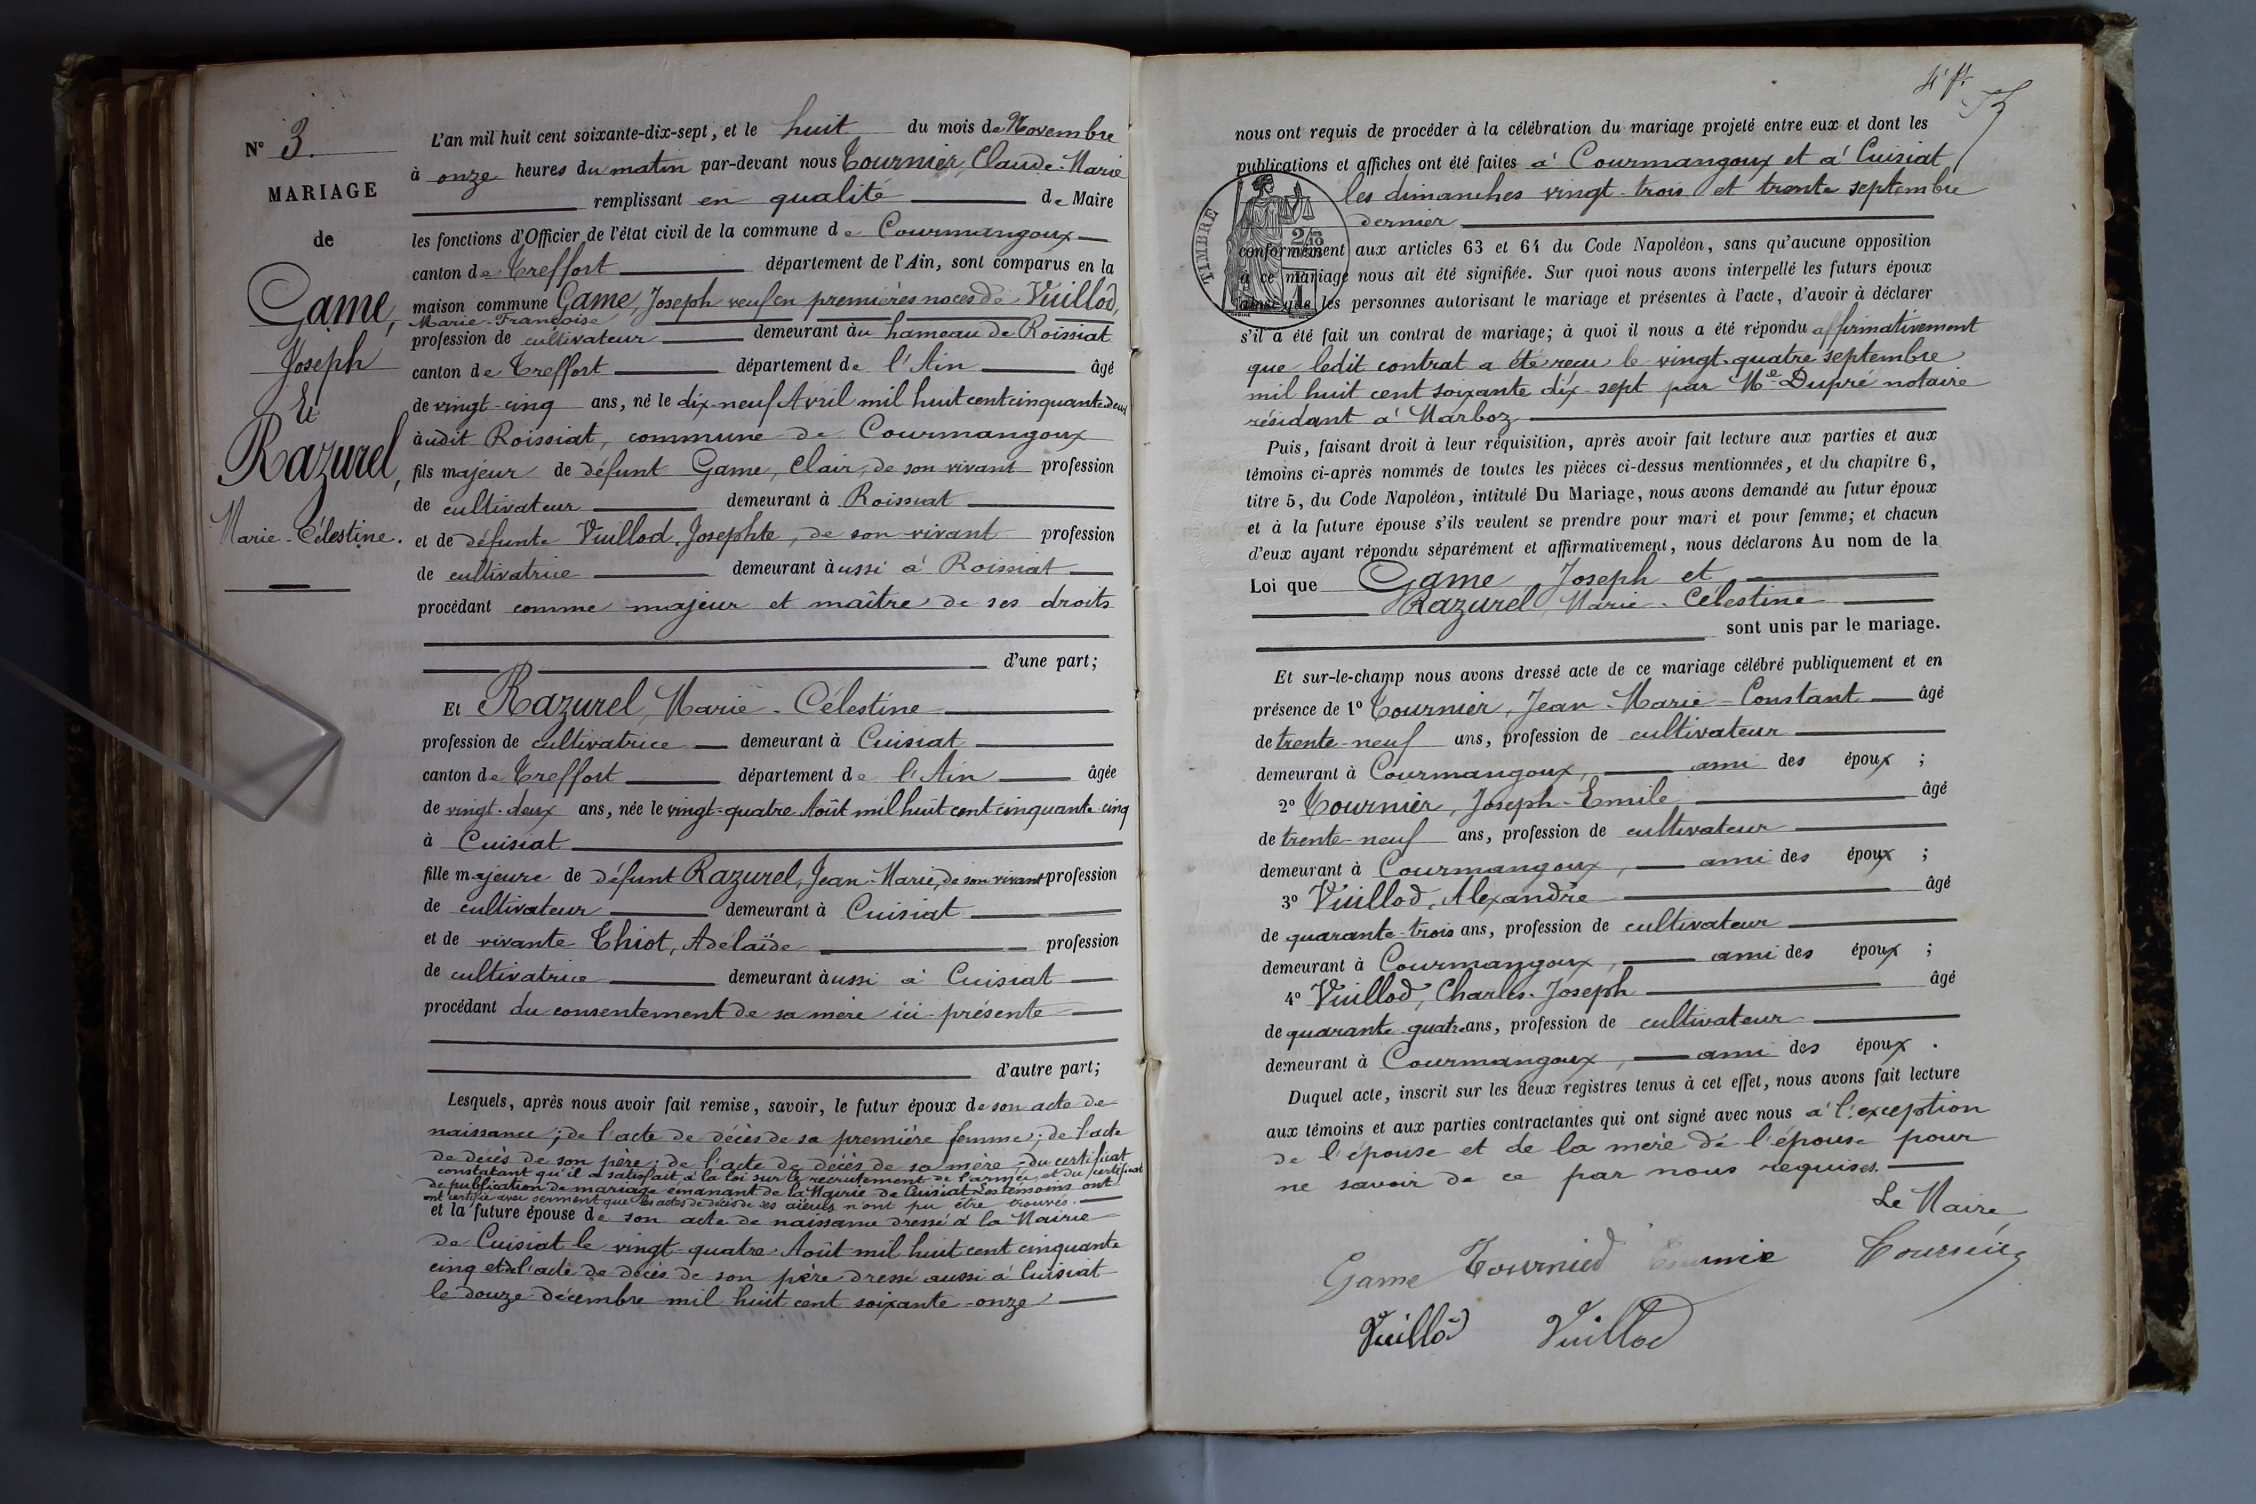 N° 3.
MARIAGE
de
Game,
Joseph
Et
Razurel,
Marie-Célestine.
L'an mil huit cent soixante-dix-sept, et le huit du mois de Novembre
à onze heures du matin par-devant nous Tournier, Claude-Marie
remplissant en qualité de Maire
les fonctions d'Officier de l'état civil de la commune de Courmangoux
canton de Treffort département de l'Ain, sont comparus en la
maison commune Game, Joseph veuf en premières noces de Vuillod,
Marie-Françoise
profession de cultivateur demeurant au hameau de Roissiat
canton de Treffort département de l'Ain âgé
de vingt-cinq ans, né le dix-neuf Avril mil huit cent cinquante deux
àudit Roissiat, commune de Courmangoux
fils majeur de défunt Game, Clair, de son vivant profession
de cultivateur demeurant à Roissiat
et de défunte Vuillod, Josephte, de son vivant profession
de cultivatrice demeurant àussi à Roissiat
procédant comme majeur et maître de ses droits
d'une part;
Et Razurel, Marie-Célestine
profession de cultivatrice demeurant à Cuisiat
canton de Treffort département de l'Ain âgée
de vingt-deux ans, née le vingt-quatre Août mil huit cent cinquante cinq
à Cuisiat
fille majeure de défunt Razurel, Jean-Marie, de son vivant profession
de cultivateur demeurant à Cuisiat
et de vivante Thiot, Adélaïde profession
de cultivatrice demeurant àussi à Cuisiat
procédant du consentement de sa mère ici présente
d'autre part;
Lesquels, après nous avoir fait remise, savoir, le futur époux de son acte de
naissance; de l'acte de décès de sa première femme; de l'acte
de décès de son père; de l'acte de décès de sa mère; du certificat
constatant qu'il a satisfait à la loi sur le recrutement de l'armée, et du certificat
de publication de mariage émanant de la Mairie de Cuisiat Les témoins ont
ont certifié avec serment que les actes de décès de ses aïeuls n'ont pu être trouvés.
et la future épouse de son acte de naissance dressé à la Mairie
de Cuisiat le vingt-quatre Août mil huit cent cinquante
cinq et de l'acte de décès de son père dressé aussi à Cuisiat
le douze décembre mil huit cent soixante-onze
nous ont requis de procéder à la célébration du mariage projeté entre eux et dont les
publications et affiches ont été faites à Courmangoux et à Cuisiat
les dimanches vingt-trois et trente septembre
dernier
TIMBRE
conformément aux articles 63 et 64 du Code Napoléon, sans qu'aucune opposition
à ce mariage nous ait été signifiée. Sur quoi nous avons interpellé les futurs époux
ainsi que les personnes autorisant le mariage et présentes à l'acte, d'avoir à déclarer
s'il a été fait un contrat de mariage; à quoi il nous a été répondu affirmativement
que ledit contrat a été reçu le vingt-quatre septembre
mil huit cent soixante dix-sept par Me Dupré notaire
résidant à Marboz
Puis, faisant droit à leur réquisition, après avoir fait lecture aux parties et aux
témoins ci-après nommés de toutes les pièces ci-dessus mentionnées, et du chapitre 6,
titre 5, du Code Napoléon, intitulé Du Mariage, nous avons demandé au futur époux
et à la future épouse s'ils veulent se prendre pour mari et pour femme; et chacun
d'eux ayant répondu séparément et affirmativement, nous déclarons Au nom de la
Loi que Game, Joseph et
Razurel, Marie-Célestine
sont unis par le mariage.
Et sur-le-champ nous avons dressé acte de ce mariage célébré publiquement et en
présence de 1° Tournier, Jean-Marie-Constant âgé
de trente-neuf ans, profession de cultivateur
demeurant à Courmangoux, ami des époux;
2° Tournier, Joseph-Emile âgé
de trente-neuf ans, profession de cultivateur
demeurant à Courmangoux, ami des époux;
3° Vuillod, Alexandre âgé
de quarante-trois ans, profession de cultivateur
demeurant à Courmangoux, ami des époux;
4° Vuillod, Charles-Joseph âgé
de quarante-quatre ans, profession de cultivateur
demeurant à Courmangoux, ami des époux.
Duquel acte, inscrit sur les deux registres tenus à cet effet, nous avons fait lecture
aux témoins et aux parties contractantes qui ont signé avec nous à l'exception
de l'épouse et de la mère de l'épouse pour
ne savoir de ce par nous requises.
Le Maire
Game Tournier Tournier Tournier
Vuillod Vuillod